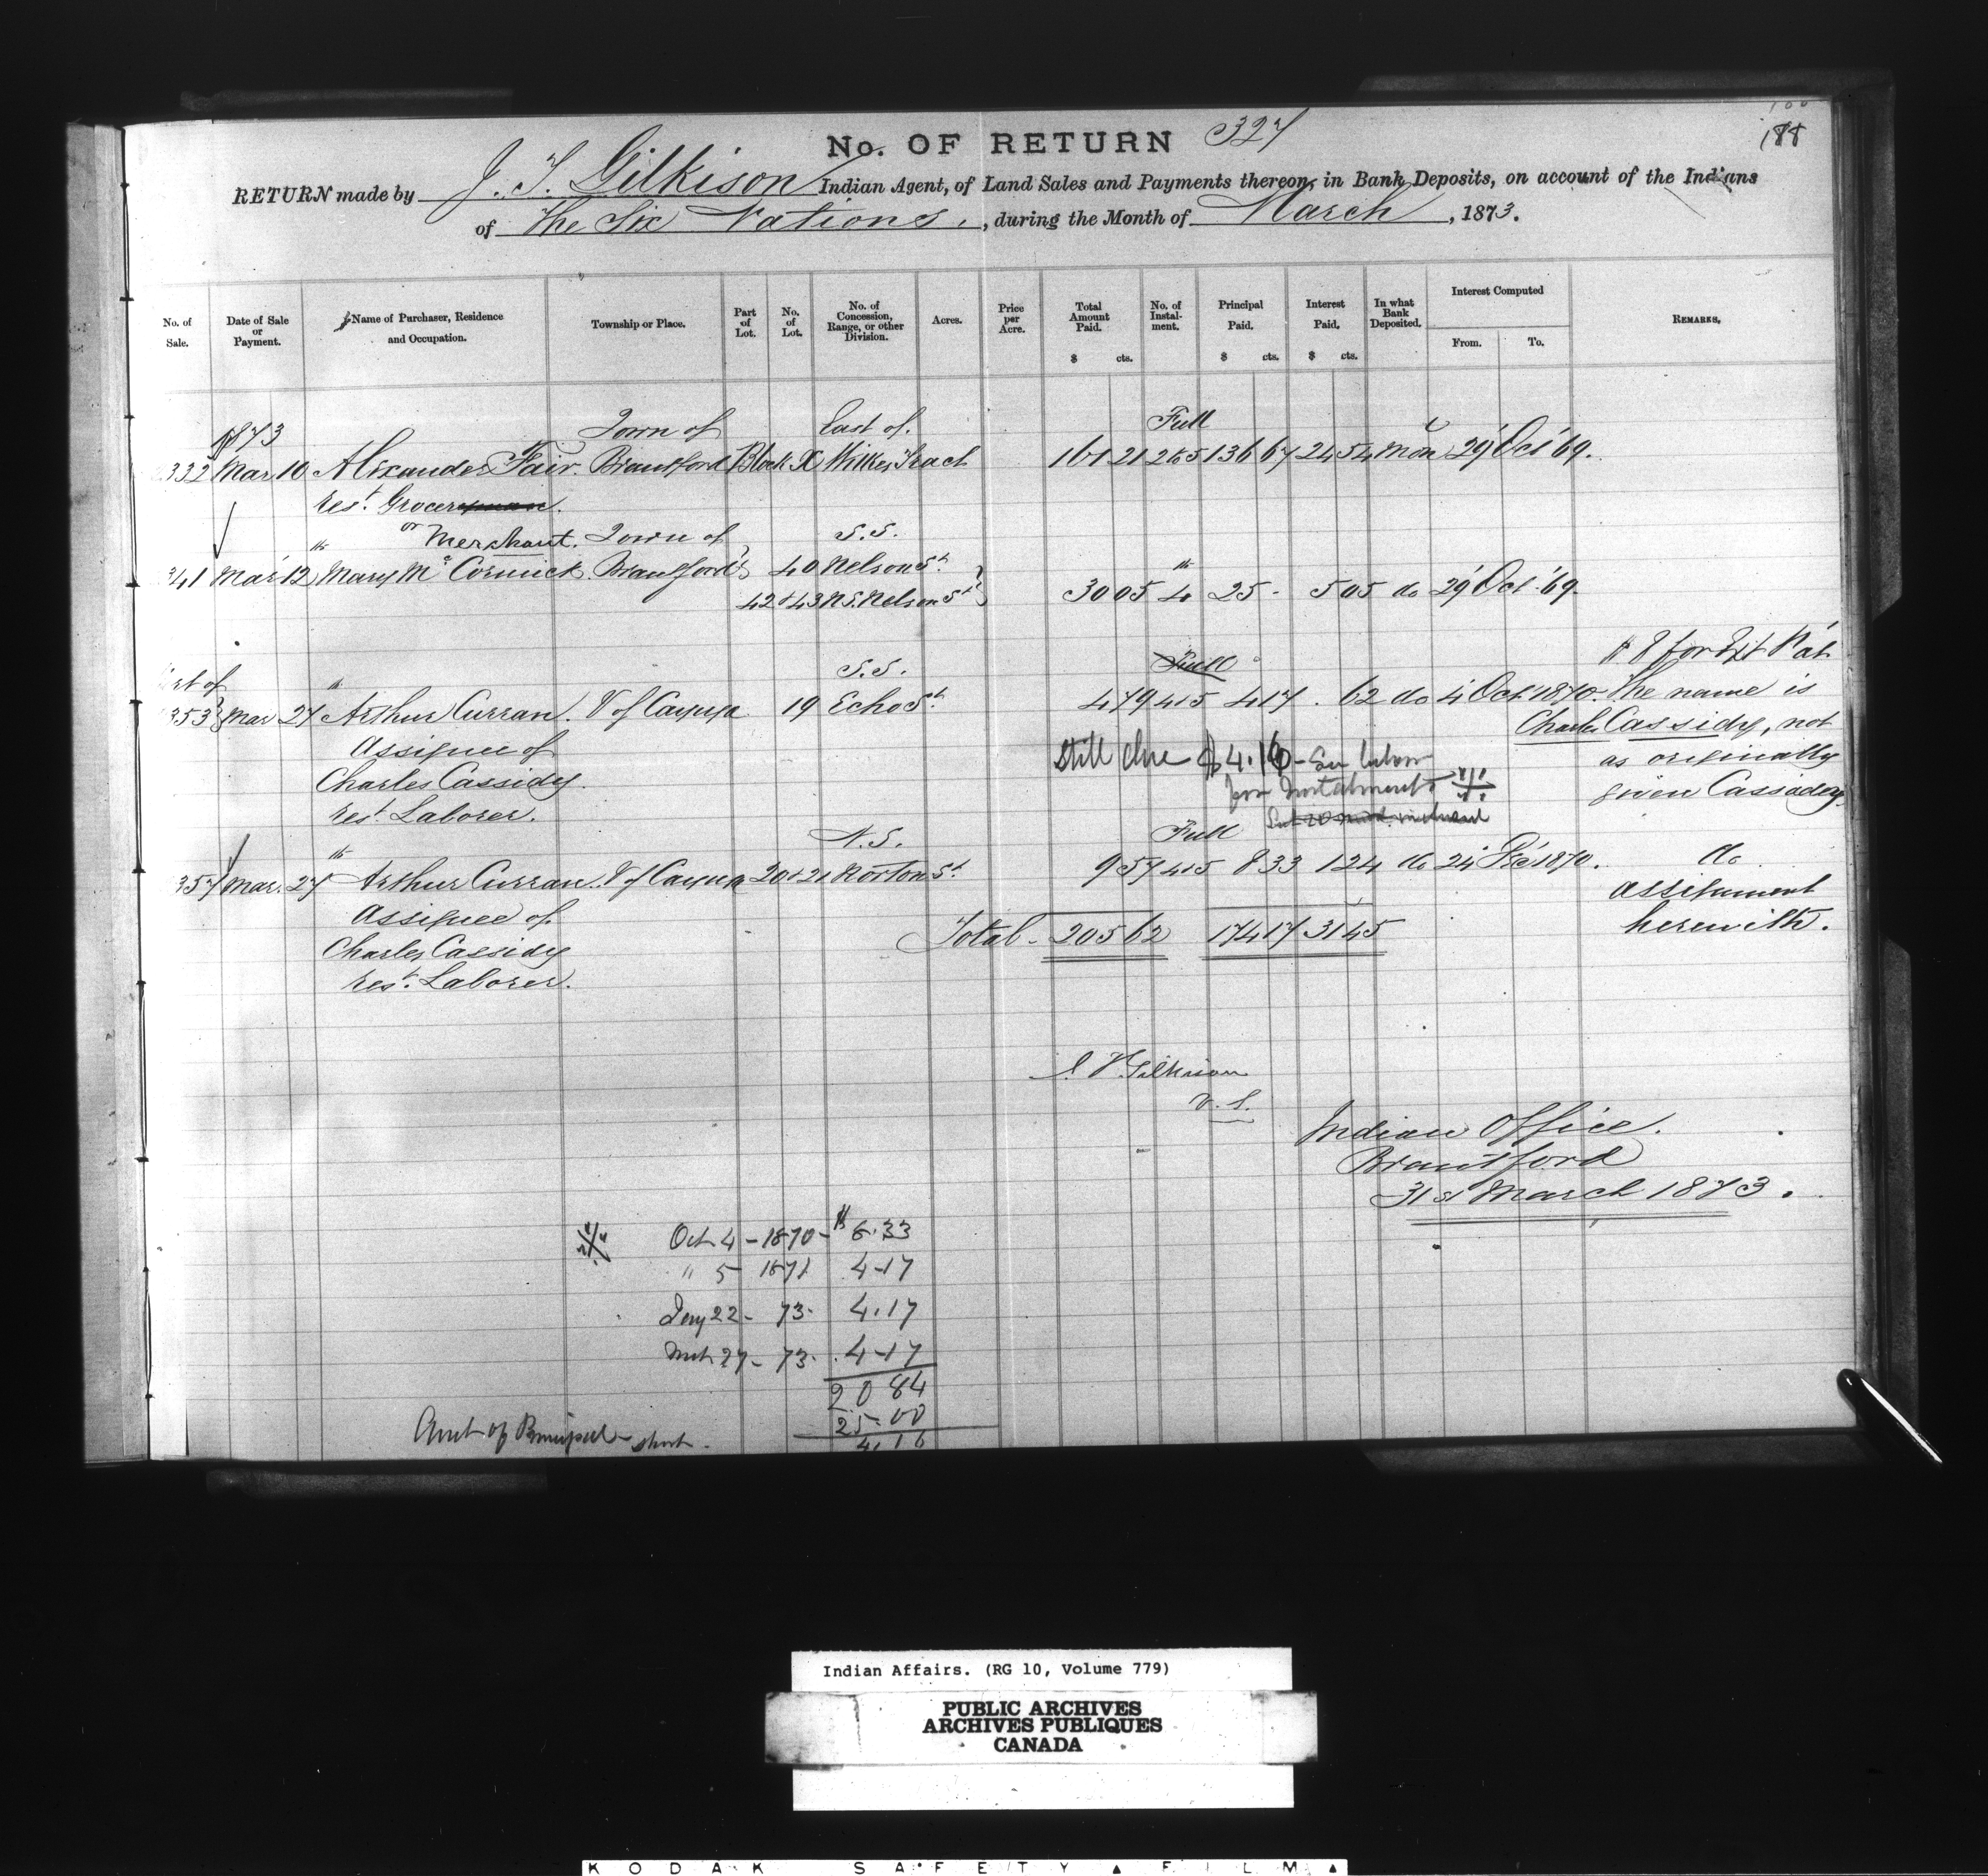 188
No. OF RETURN 327
RETURN made by J. T. Gilkison Indian Agent, of Land Sales and Payments thereon, in Bank Deposits, on account of the Indians
of The Six Nations, during the Month of March, 1873.
No. of Sale. Date of Sale or Payment. Name of Purchaser, Residence and Occupation. Township or Place. Part of Lot. No. of Lot. No. of Concession, Range, or other Division. Acres. Price per Acre. Total Amount Paid. $ cts. No. of Instalment. Principal Paid. $ cts. Interest Paid, $ cts. In what Bank Deposited. Interest Computed From. To. REMARKS.
1873 Town of East of Full
332 Mar 10 Alexander Fair. Brantford Block X Wilkes Tract 161 21 2&5 136 67 24 54 Mon 29 Oct '69.
rest. Grocer
or Merchant. Town of S.S.
341 Mar 12th Mary McCormick Brantford 40 Nelson St.
42 & 43 N.S. Nelson St. 30 05 4th 25 - 5 05 do 29 Oct '69.
Part of S.S. Full
353 Mar 27th Arthur Curran. V of Cayuga 19 Echo St. 4 79 4&5 4 17 . 62 do 4 Oct 1870. The name is
Assignee of Charles Cassidy, not
Charles Cassidy. Still due $4.16 - See below as originally
rest. Laborer. for Instalments given Cassadey.
N.S. Full
357 Mar. 27th Arthur Curran. V of Cayuga 20 & 21 Norton St. 9 57 4&5 8 33 1 24 do 24 Dec 1870. do
Assignee of assignment
Charles Cassidy Total - 205 62 174 17 31 45 herewith.
rest. Laborer.
J. T. Gilkison
V. S.
Indian Office.
Brantford
31st March 1873.
Oct 4 - 1870 - $8.33
" 5 1871 4-17
Jany 22 - 73 - 4.17
Mch 27 - 73 - 4-17
20 84
25.00
Amt of Principal short - 4.16
Indian Affairs. (RG 10, Volume 779)
PUBLIC ARCHIVES
ARCHIVES PUBLIQUES
CANADA
KODAK SAFETY ▲ FILM ▲